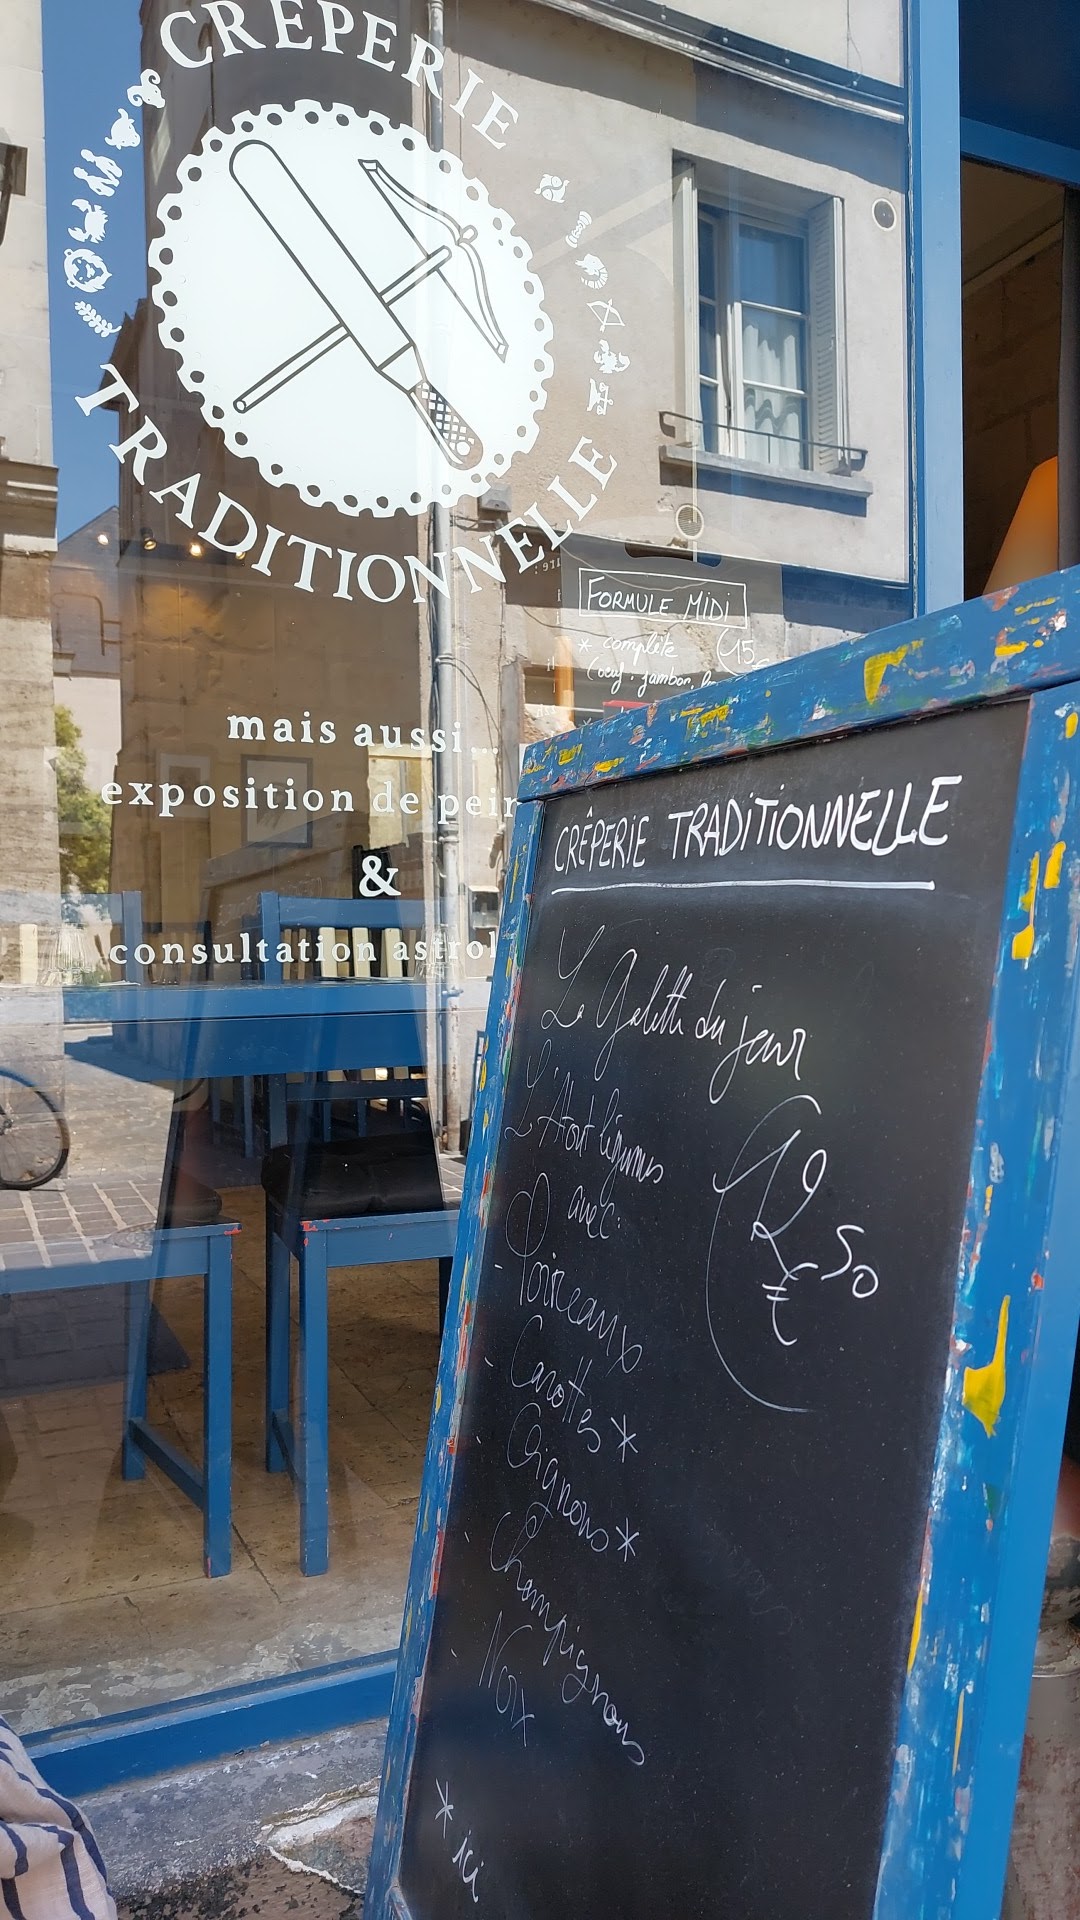 CRÊPERIE
TRADITIONNELLE
mais aussi...
exposition de pein
&
consultation astrol
FORMULE MIDI
* complète 15
(oeuf, jambon,
CRÊPERIE TRADITIONNELLE
La Galette du jour
L'Atout légumes
avec:
12 50
€
- Poireaux
- Carottes *
- Oignons *
- Champignons
- Noix
* ici